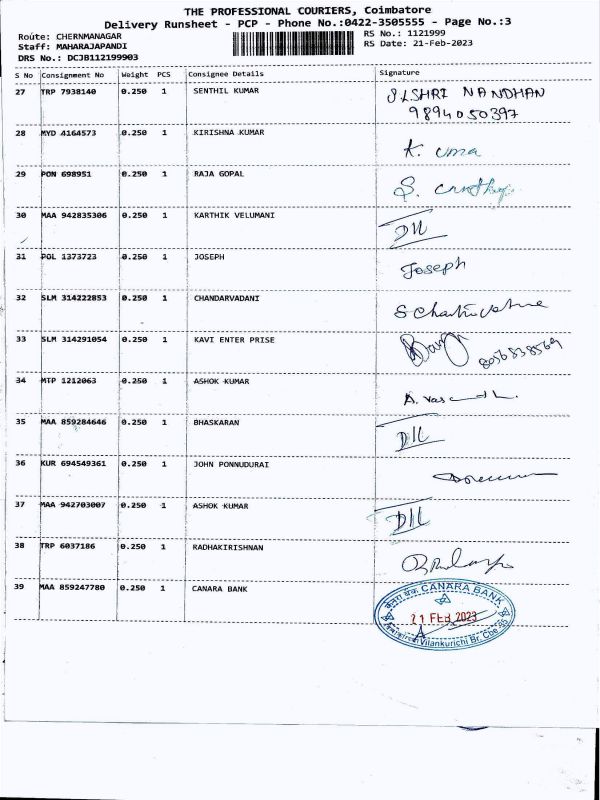 THE PROFESSIONAL COURIERS, Coimbatore
Delivery Runsheet - PCP - Phone No.:0422-3505555 - Page No.:3
Route: CHERNMANAGAR RS No.: 1121999
Staff: MAHARAJAPANDI RS Date: 21-Feb-2023
DRS No.: DCJB112199903
S No Consignment No Weight PCS Consignee Details Signature
27 TRP 7938140 0.250 1 SENTHIL KUMAR S.L.SHRI NANDHAN
9894050397
28 MYD 4164573 0.250 1 KIRISHNA KUMAR K. uma
29 PON 698951 0.250 1 RAJA GOPAL
30 MAA 942835306 0.250 1 KARTHIK VELUMANI D/L
31 POL 1373723 0.250 1 JOSEPH Joseph
32 SLM 314222853 0.250 1 CHANDARVADANI
33 SLM 314291054 0.250 1 KAVI ENTER PRISE 8056838569
34 MTP 1212063 0.250 1 ASHOK KUMAR
35 MAA 859284646 0.250 1 BHASKARAN D/L
36 KUR 694549361 0.250 1 JOHN PONNUDURAI
37 MAA 942703007 0.250 1 ASHOK KUMAR D/L
38 TRP 6037186 0.250 1 RADHAKIRISHNAN
39 MAA 859247780 0.250 1 CANARA BANK
केनरा बैंक CANARA BANK
21 FEB 2023
Vilankurichi Br. Cbe